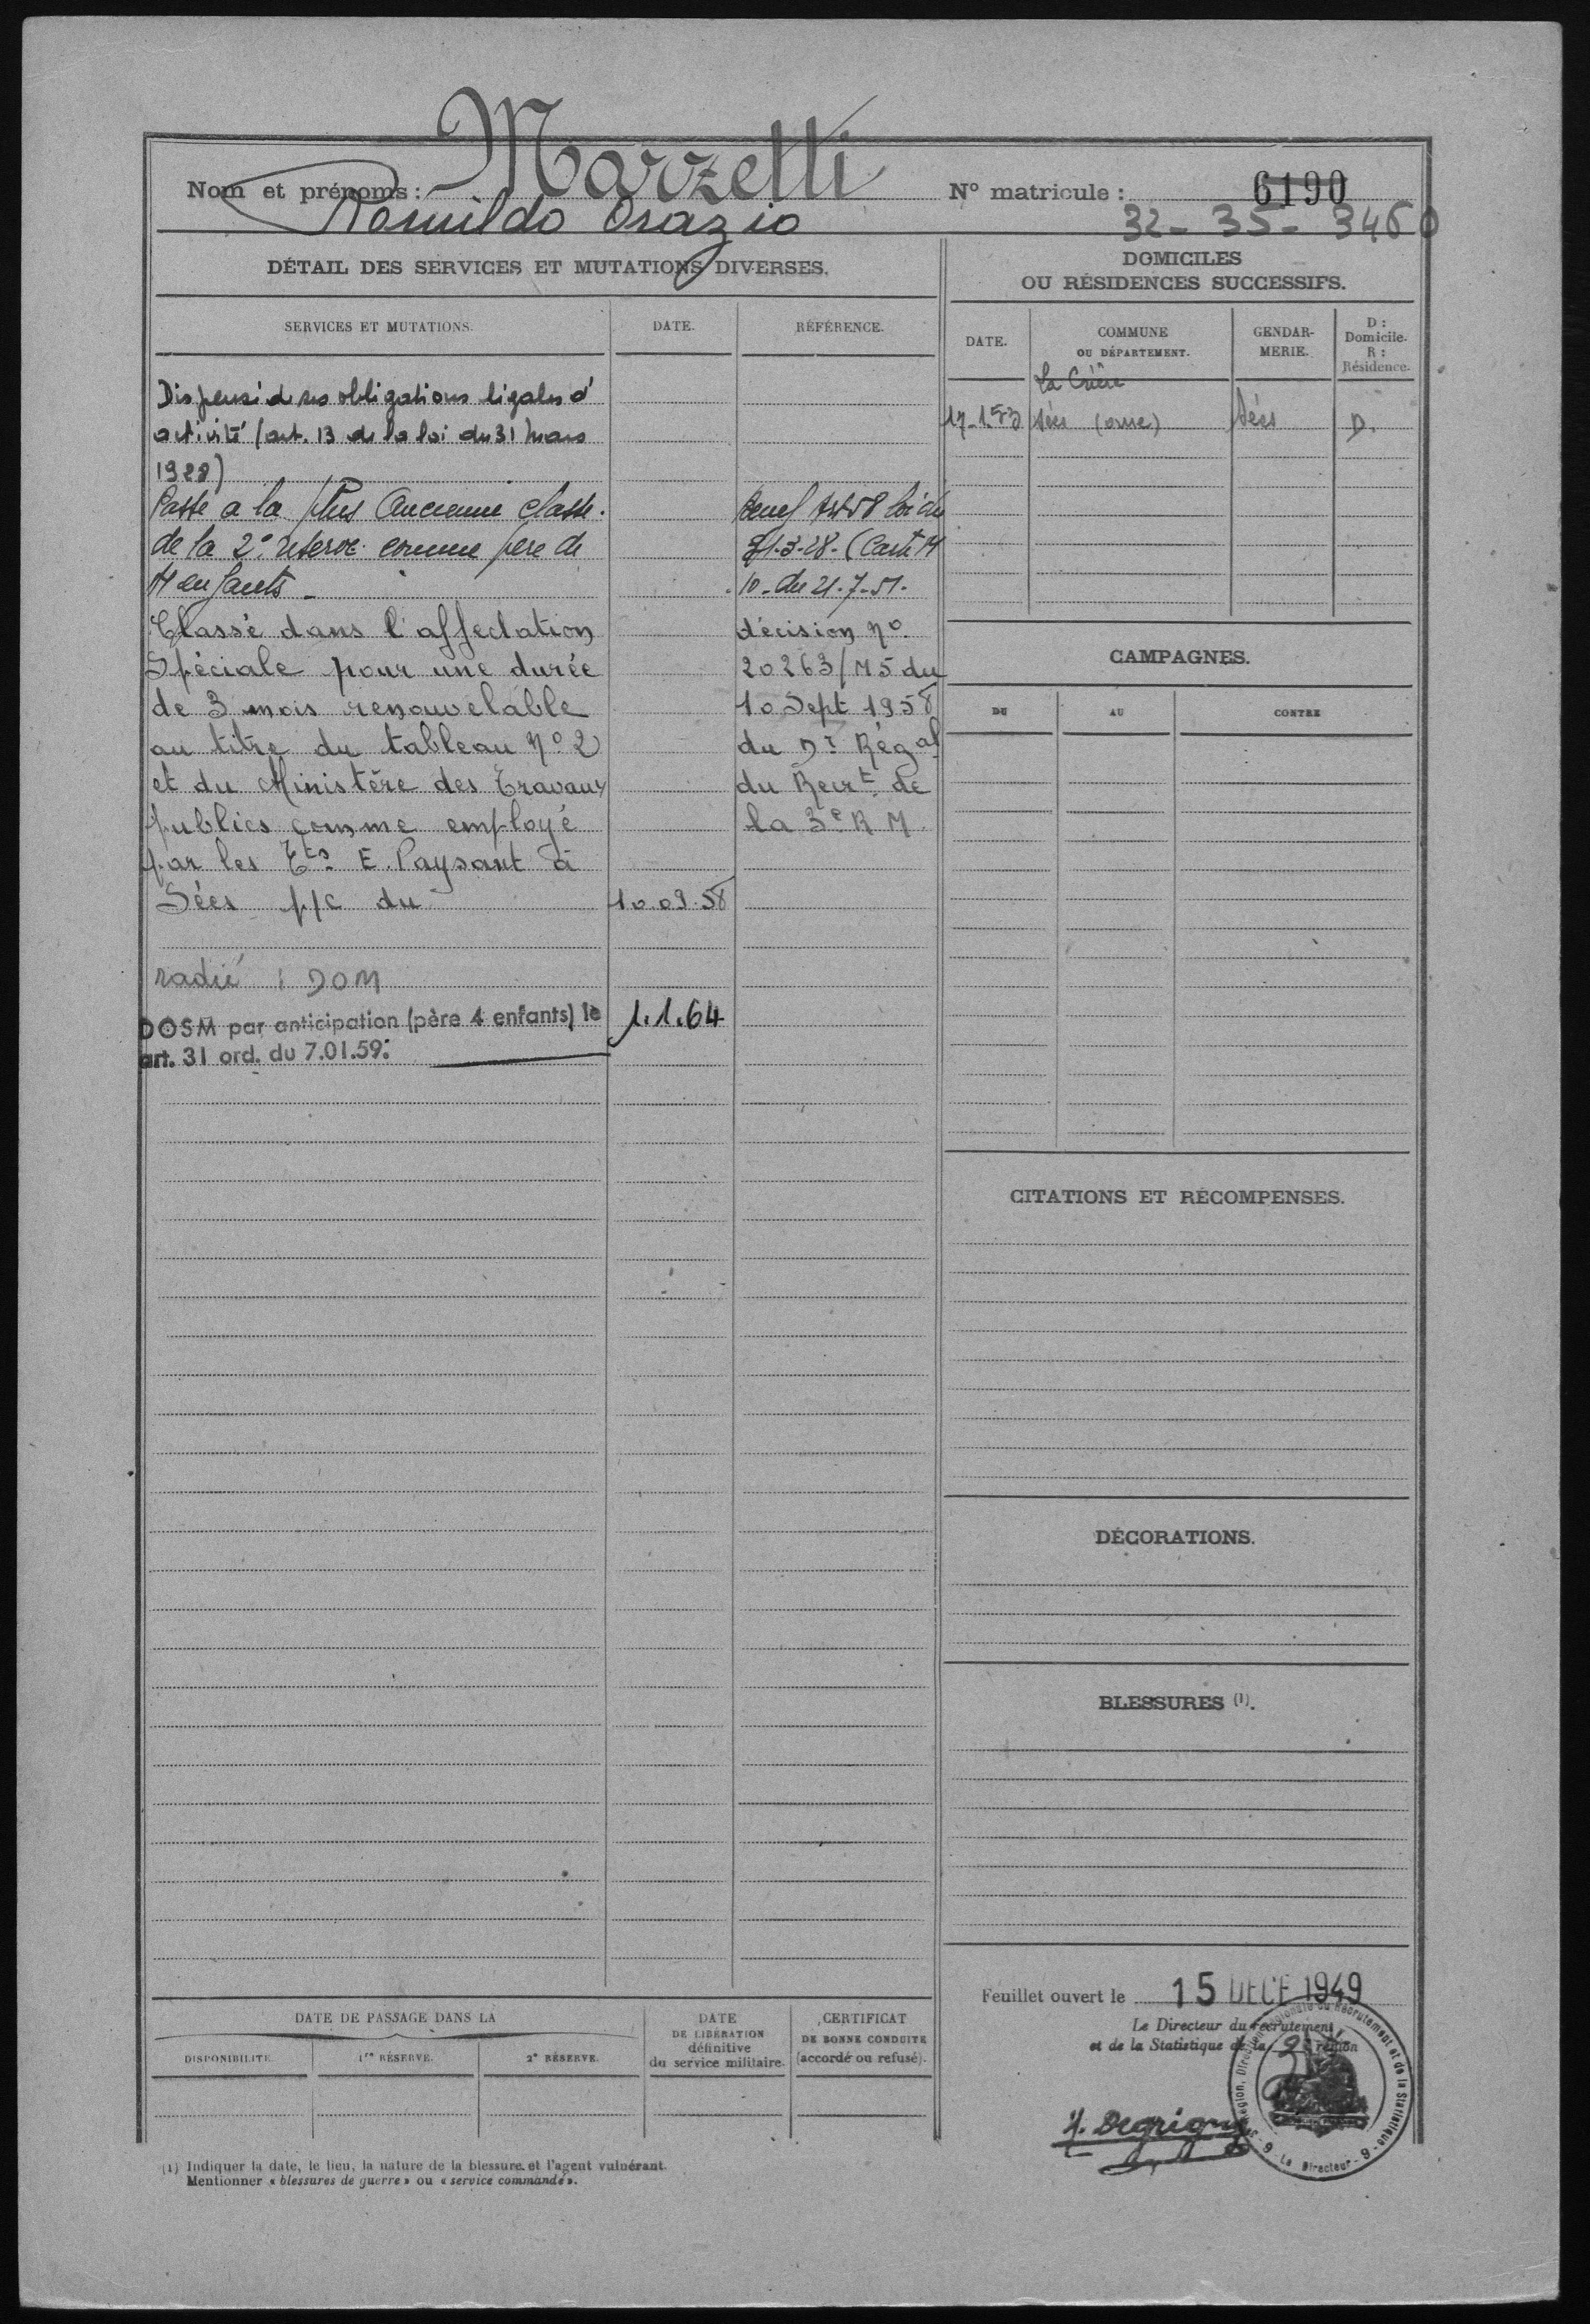 Nom et prénoms : Marzetti
Romildo Orazio
N° matricule : 6190
32 - 35 - 3460
DÉTAIL DES SERVICES ET MUTATIONS DIVERSES.
SERVICES ET MUTATIONS.
DATE.
RÉFÉRENCE.
Dispensé de ses obligations légales d'
activité (art. 13 de la loi du 31 mars
1928)
Passé a la plus Ancienne classe.
de la 2e reserve comme père de
4 enfants -
Benef Art 58 loi du
31-3-28- (Carte M
10 - du 21-7-51.
Classé dans l'affectation
Spéciale pour une durée
de 3 mois renouvelable
au titre du tableau n° 2
et du Ministère des Travaux
publics comme employé
par les Ets E. Paysant à
Sées p/c du 10.09.58
décision n°
20263/M5 du
10 Sept 1958
du Dr Régal
du Recrt de
la 3e R M.
radié : DOM
DOSM par anticipation (père 4 enfants) le 1.1.64
art. 31 ord. du 7.01.59.
DOMICILES
OU RÉSIDENCES SUCCESSIFS.
DATE.
COMMUNE
OU DÉPARTEMENT.
GENDAR-
MERIE.
D :
Domicile.
R :
Résidence.
La
17-1-53 Sées (orne) Sées D.
CAMPAGNES.
DU
AU
CONTRE
CITATIONS ET RÉCOMPENSES.
DÉCORATIONS.
BLESSURES (1).
DATE DE PASSAGE DANS LA
DISPONIBILITÉ.
1re RÉSERVE.
2e RÉSERVE.
DATE
DE LIBÉRATION
définitive
du service militaire.
CERTIFICAT
DE BONNE CONDUITE
(accordé ou refusé).
Feuillet ouvert le 15 DECE 1949
Le Directeur du recrutement
et de la Statistique de la 3e région
Région. Direction Régionale du Recrutement et de la Statistique
- 9 - Le Directeur - 9 -
(1) Indiquer la date, le lieu, la nature de la blessure et l'agent vulnérant.
Mentionner « blessures de guerre » ou « service commandé ».